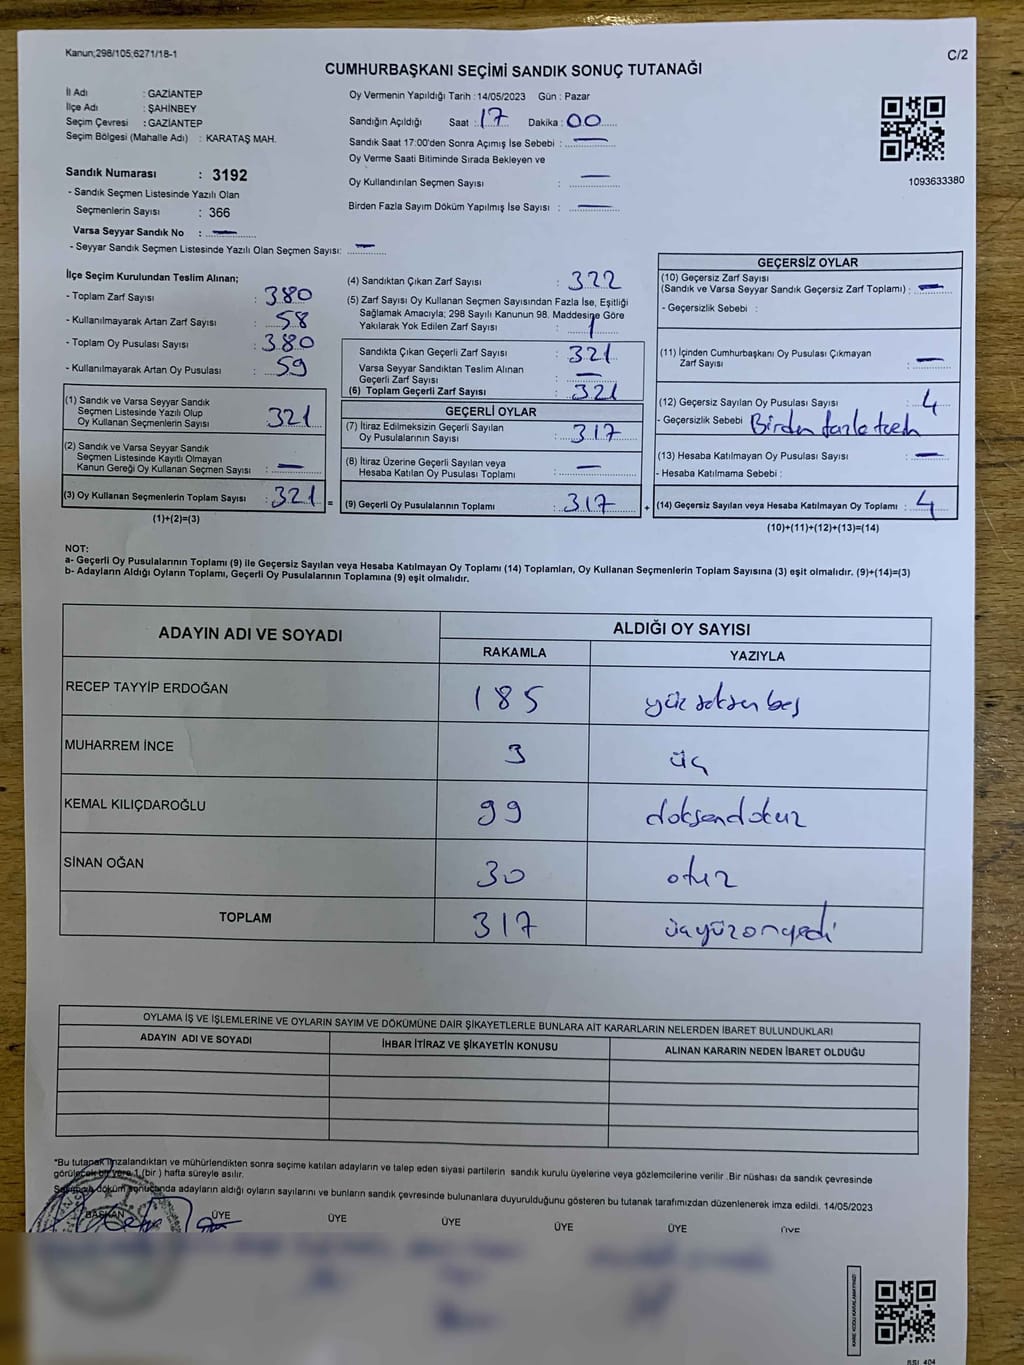 Kanun;298/105;6271/18-1
C/2
CUMHURBAŞKANI SEÇİMİ SANDIK SONUÇ TUTANAĞI
İl Adı : GAZİANTEP
İlçe Adı : ŞAHİNBEY
Seçim Çevresi : GAZİANTEP
Seçim Bölgesi (Mahalle Adı) : KARATAŞ MAH.
Sandık Numarası : 3192
- Sandık Seçmen Listesinde Yazılı Olan
Seçmenlerin Sayısı : 366
Varsa Seyyar Sandık No : —
- Seyyar Sandık Seçmen Listesinde Yazılı Olan Seçmen Sayısı: —
Oy Vermenin Yapıldığı Tarih : 14/05/2023 Gün : Pazar
Sandığın Açıldığı Saat : 17 Dakika : 00
Sandık Saat 17:00'den Sonra Açımış İse Sebebi : —
Oy Verme Saati Bitiminde Sırada Bekleyen ve
Oy Kullandırılan Seçmen Sayısı : —
Birden Fazla Sayım Döküm Yapılmış İse Sayısı : —
1093633380
İlçe Seçim Kurulundan Teslim Alınan;
- Toplam Zarf Sayısı : 380
- Kullanılmayarak Artan Zarf Sayısı : 58
- Toplam Oy Pusulası Sayısı : 380
- Kullanılmayarak Artan Oy Pusulası : 59
(1) Sandık ve Varsa Seyyar Sandık
Seçmen Listesinde Yazılı Olup
Oy Kullanan Seçmenlerin Sayısı : 321
(2) Sandık ve Varsa Seyyar Sandık
Seçmen Listesinde Kayıtlı Olmayan
Kanun Gereği Oy Kullanan Seçmen Sayısı : —
(3) Oy Kullanan Seçmenlerin Toplam Sayısı : 321 =
(1)+(2)=(3)
(4) Sandıktan Çıkan Zarf Sayısı : 322
(5) Zarf Sayısı Oy Kullanan Seçmen Sayısından Fazla İse, Eşitliği
Sağlamak Amacıyla; 298 Sayılı Kanunun 98. Maddesine Göre
Yakılarak Yok Edilen Zarf Sayısı : 1
Sandıkta Çıkan Geçerli Zarf Sayısı : 321
Varsa Seyyar Sandıktan Teslim Alınan
Geçerli Zarf Sayısı : —
(6) Toplam Geçerli Zarf Sayısı : 321
GEÇERLİ OYLAR
(7) İtiraz Edilmeksizin Geçerli Sayılan
Oy Pusulalarının Sayısı : 317
(8) İtiraz Üzerine Geçerli Sayılan veya
Hesaba Katılan Oy Pusulası Toplamı : —
(9) Geçerli Oy Pusulalarının Toplamı : 317 +
GEÇERSİZ OYLAR
(10) Geçersiz Zarf Sayısı
(Sandık ve Varsa Seyyar Sandık Geçersiz Zarf Toplamı) : —
- Geçersizlik Sebebi :
(11) İçinden Cumhurbaşkanı Oy Pusulası Çıkmayan
Zarf Sayısı : —
(12) Geçersiz Sayılan Oy Pusulası Sayısı : 4
- Geçersizlik Sebebi Birden fazla
(13) Hesaba Katılmayan Oy Pusulası Sayısı : —
- Hesaba Katılmama Sebebi :
(14) Geçersiz Sayılan veya Hesaba Katılmayan Oy Toplamı : 4
(10)+(11)+(12)+(13)=(14)
NOT:
a- Geçerli Oy Pusulalarının Toplamı (9) ile Geçersiz Sayılan veya Hesaba Katılmayan Oy Toplamı (14) Toplamları, Oy Kullanan Seçmenlerin Toplam Sayısına (3) eşit olmalıdır. (9)+(14)=(3)
b- Adayların Aldığı Oyların Toplamı, Geçerli Oy Pusulalarının Toplamına (9) eşit olmalıdır.
ADAYIN ADI VE SOYADI ALDIĞI OY SAYISI
RAKAMLA YAZIYLA
RECEP TAYYİP ERDOĞAN 185 yüz seksen beş
MUHARREM İNCE 3 üç
KEMAL KILIÇDAROĞLU 99 doksandokuz
SİNAN OĞAN 30 otuz
TOPLAM 317 üçyüzonyedi
OYLAMA İŞ VE İŞLEMLERİNE VE OYLARIN SAYIM VE DÖKÜMÜNE DAİR ŞİKAYETLERLE BUNLARA AİT KARARLARIN NELERDEN İBARET BULUNDUKLARI
ADAYIN ADI VE SOYADI İHBAR İTİRAZ VE ŞİKAYETİN KONUSU ALINAN KARARIN NEDEN İBARET OLDUĞU
*Bu tutanak imzalandıktan ve mühürlendikten sonra seçime katılan adayların ve talep eden siyasi partilerin sandık kurulu üyelerine veya gözlemcilerine verilir. Bir nüshası da sandık çevresinde
görülecek bir yere 1 (bir) hafta süreyle asılır.
döküm sonucunda adayların aldığı oyların sayılarını ve bunların sandık çevresinde bulunanlara duyurulduğunu gösteren bu tutanak tarafımızdan düzenlenerek imza edildi. 14/05/2023
BAŞKAN ÜYE ÜYE ÜYE ÜYE ÜYE ÜYE